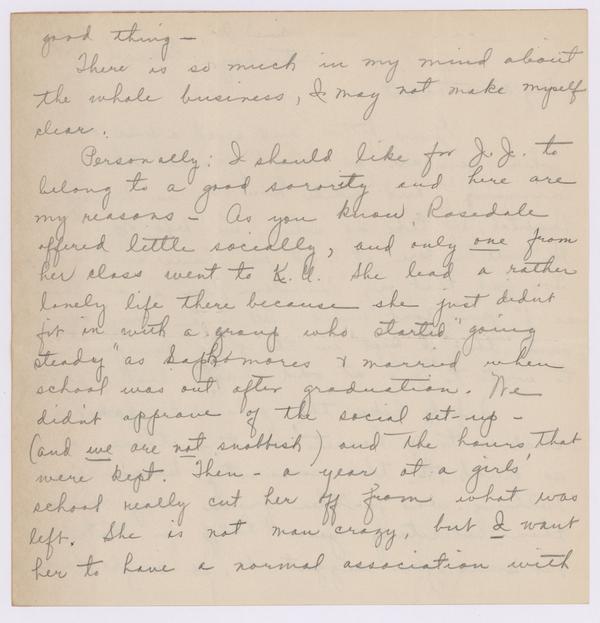 good thing —
There is so much in my mind about
the whole business, I may not make myself
clear.
Personally: I should like for J.J. to
belong to a good sorority and here are
my reasons — As you know, Rosedale
offered little socially, and only one from
her class went to K.U. She lead a rather
lonely life there because she just didn't
fit in with a group who started "going
steady" as sophomores & married when
school was out after graduation. We
didn't approve of the social set-up —
(and we are not snobbish) and the hours that
were kept. Then — a year at a girls'
school really cut her off from what was
left. She is not man crazy, but I want
her to have a normal association with